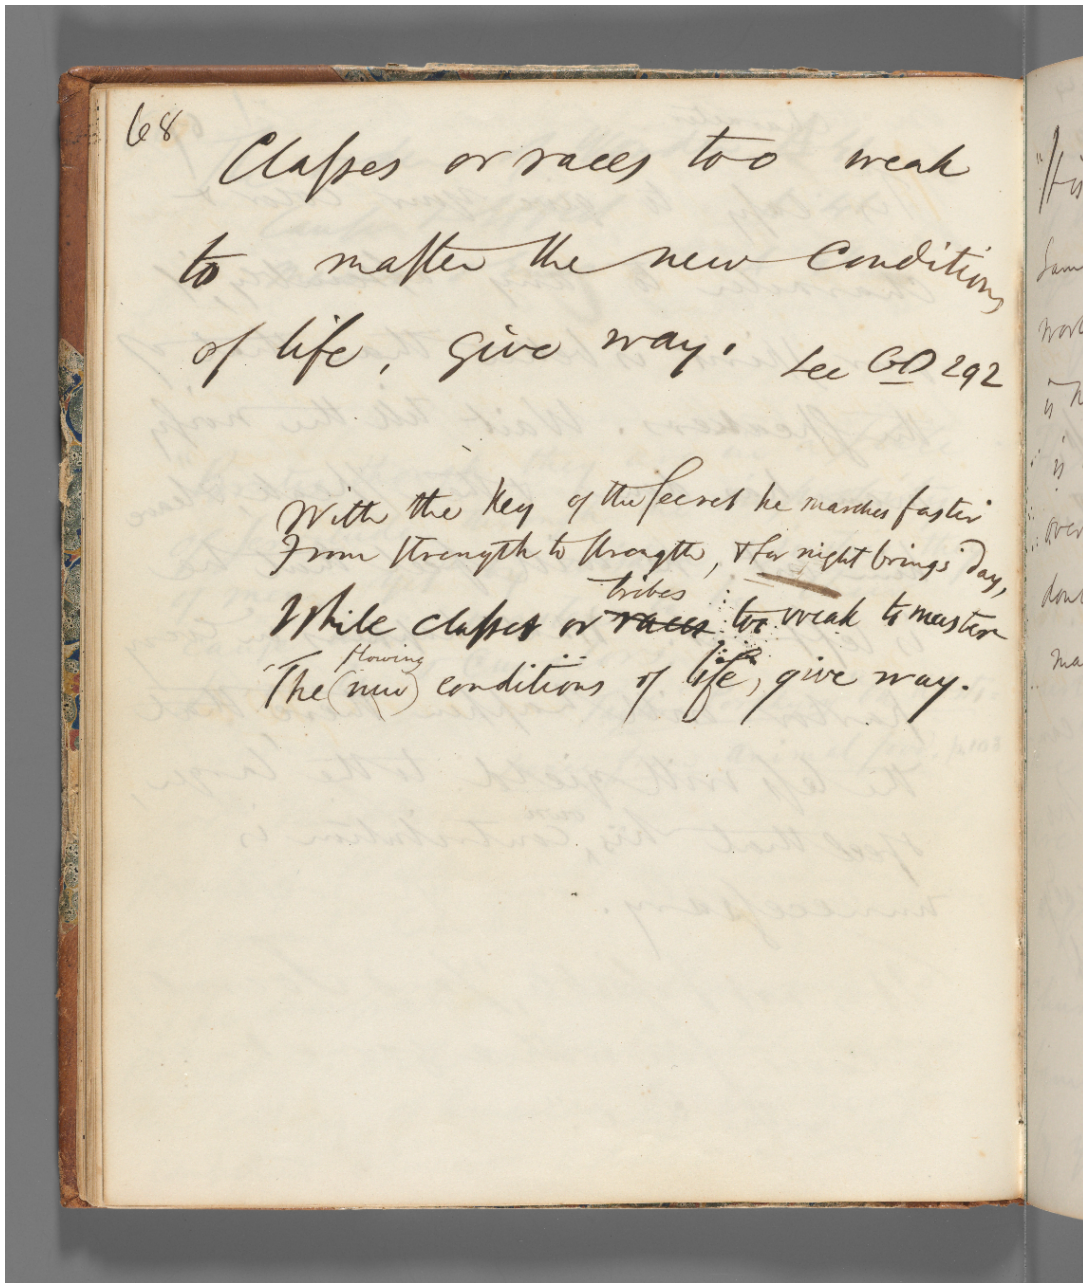 68
Classes or races too weak
to master the new conditions
of life, give way.
See GO 292
With the key of the secret he marches faster
From strength to strength, & for night brings day,
tribes
While classes or races too weak to master
flowing
The (new) conditions of life, give way.